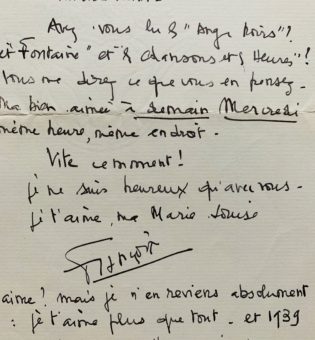 Avez vous lu & "Ange Noirs"?
et Fontaine" et & Chansons et & Heures"!
Vous me direz ce que vous en pensez -
Ma bien aimée à demain Mercredi
même heure, même endroit -
Vite ce moment!
je ne suis heureux qu'avec vous -
je t'aime, ma Marie Louise
François
aime! mais je n'en reviens absolument
: je t'aime plus que tout - et 1939